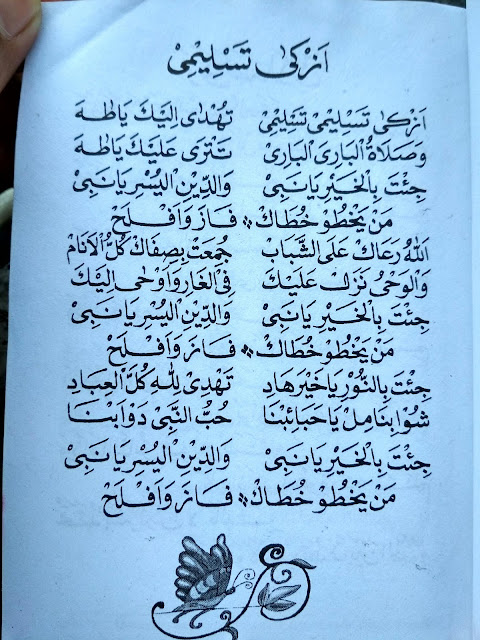 اَزْكٰى تَسْلِيْمِيْ
اَزْكٰى تَسْلِيْمِيْ تَسْلِيْمِيْ تُهْدٰى اِلَيْكَ يَاطٰهَ
وَصَلَاةُ الْبَارِى الْبَارِى تَتْرَى عَلَيْكَ يَاطٰهَ
جِئْتَ بِالْخَيْرِ يَانَبِىْ وَالدِّيْنِ الْيُسْرِ يَانَبِىْ
مَنْ يَخْطُوْ خُطَاكْ ❖ فَازَ وَاَفْلَحْ
اَللهُ رَعَاكْ عَلَى الشَّبَابْ جُمِعَتْ بِصِفَاكْ كُلُّ الْاَنَامْ
وَالْوَحْيُ نَزَلْ عَلَيْكَ فِى الْغَارِ وَاَوْحٰى اِلَيْكَ
جِئْتَ بِالْخَيْرِ يَانَبِىْ وَالدِّيْنِ الْيُسْرِ يَانَبِىْ
مَنْ يَخْطُوْ خُطَاكْ ❖ فَازَ وَاَفْلَحْ
جِئْتَ بِالنُّوْرِ يَاخَيْرَ هَادِ تَهْدِىْ لِلّٰهِ كُلَّ الْعِبَادِ
شُوْا بِنَامِلْ يَاحَبَائِبْنَا حُبُّ النَّبِيْ دَوَابْنَا
جِئْتَ بِالْخَيْرِ يَانَبِىْ وَالدِّيْنِ الْيُسْرِ يَانَبِىْ
مَنْ يَخْطُوْ خُطَاكْ ❖ فَازَ وَاَفْلَحْ